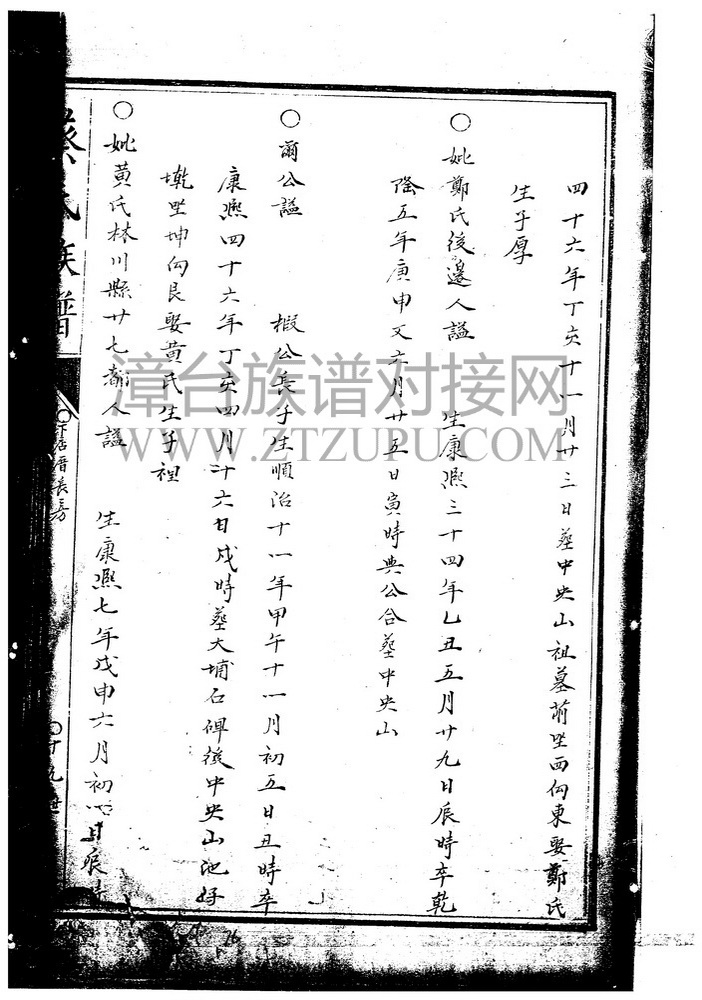 四十六年丁亥十一月廿三日葬中央山祖墓前坐西向東娶鄭氏
生子厚
○妣鄭氏後邊人謚 生康熙三十四年乙丑五月廿九日辰時卒乾
隆五年庚申又六月廿五日寅時與公合葬中央山
○爾公謚 嘏公長子生順治十一年甲午十一月初五日丑時卒
康熙四十六年丁亥四月廿六日戌時葬大埔石碑後中央山池
墘坐坤向艮娶黃氏生子裡
○妣黃氏林川縣廿七都人謚 生康熙七年戊申六月初 日辰
氏族譜
厝長房
漳台族谱对接网
WWW.ZTZUPU.COM